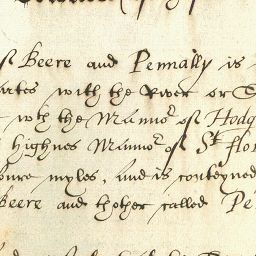 of Beere and Pennally is
artes with the River or
wth the Mannor of Hodg
highnes Mannor of St Flo
foure myles, and is conteyned
Beere and thother called Pe